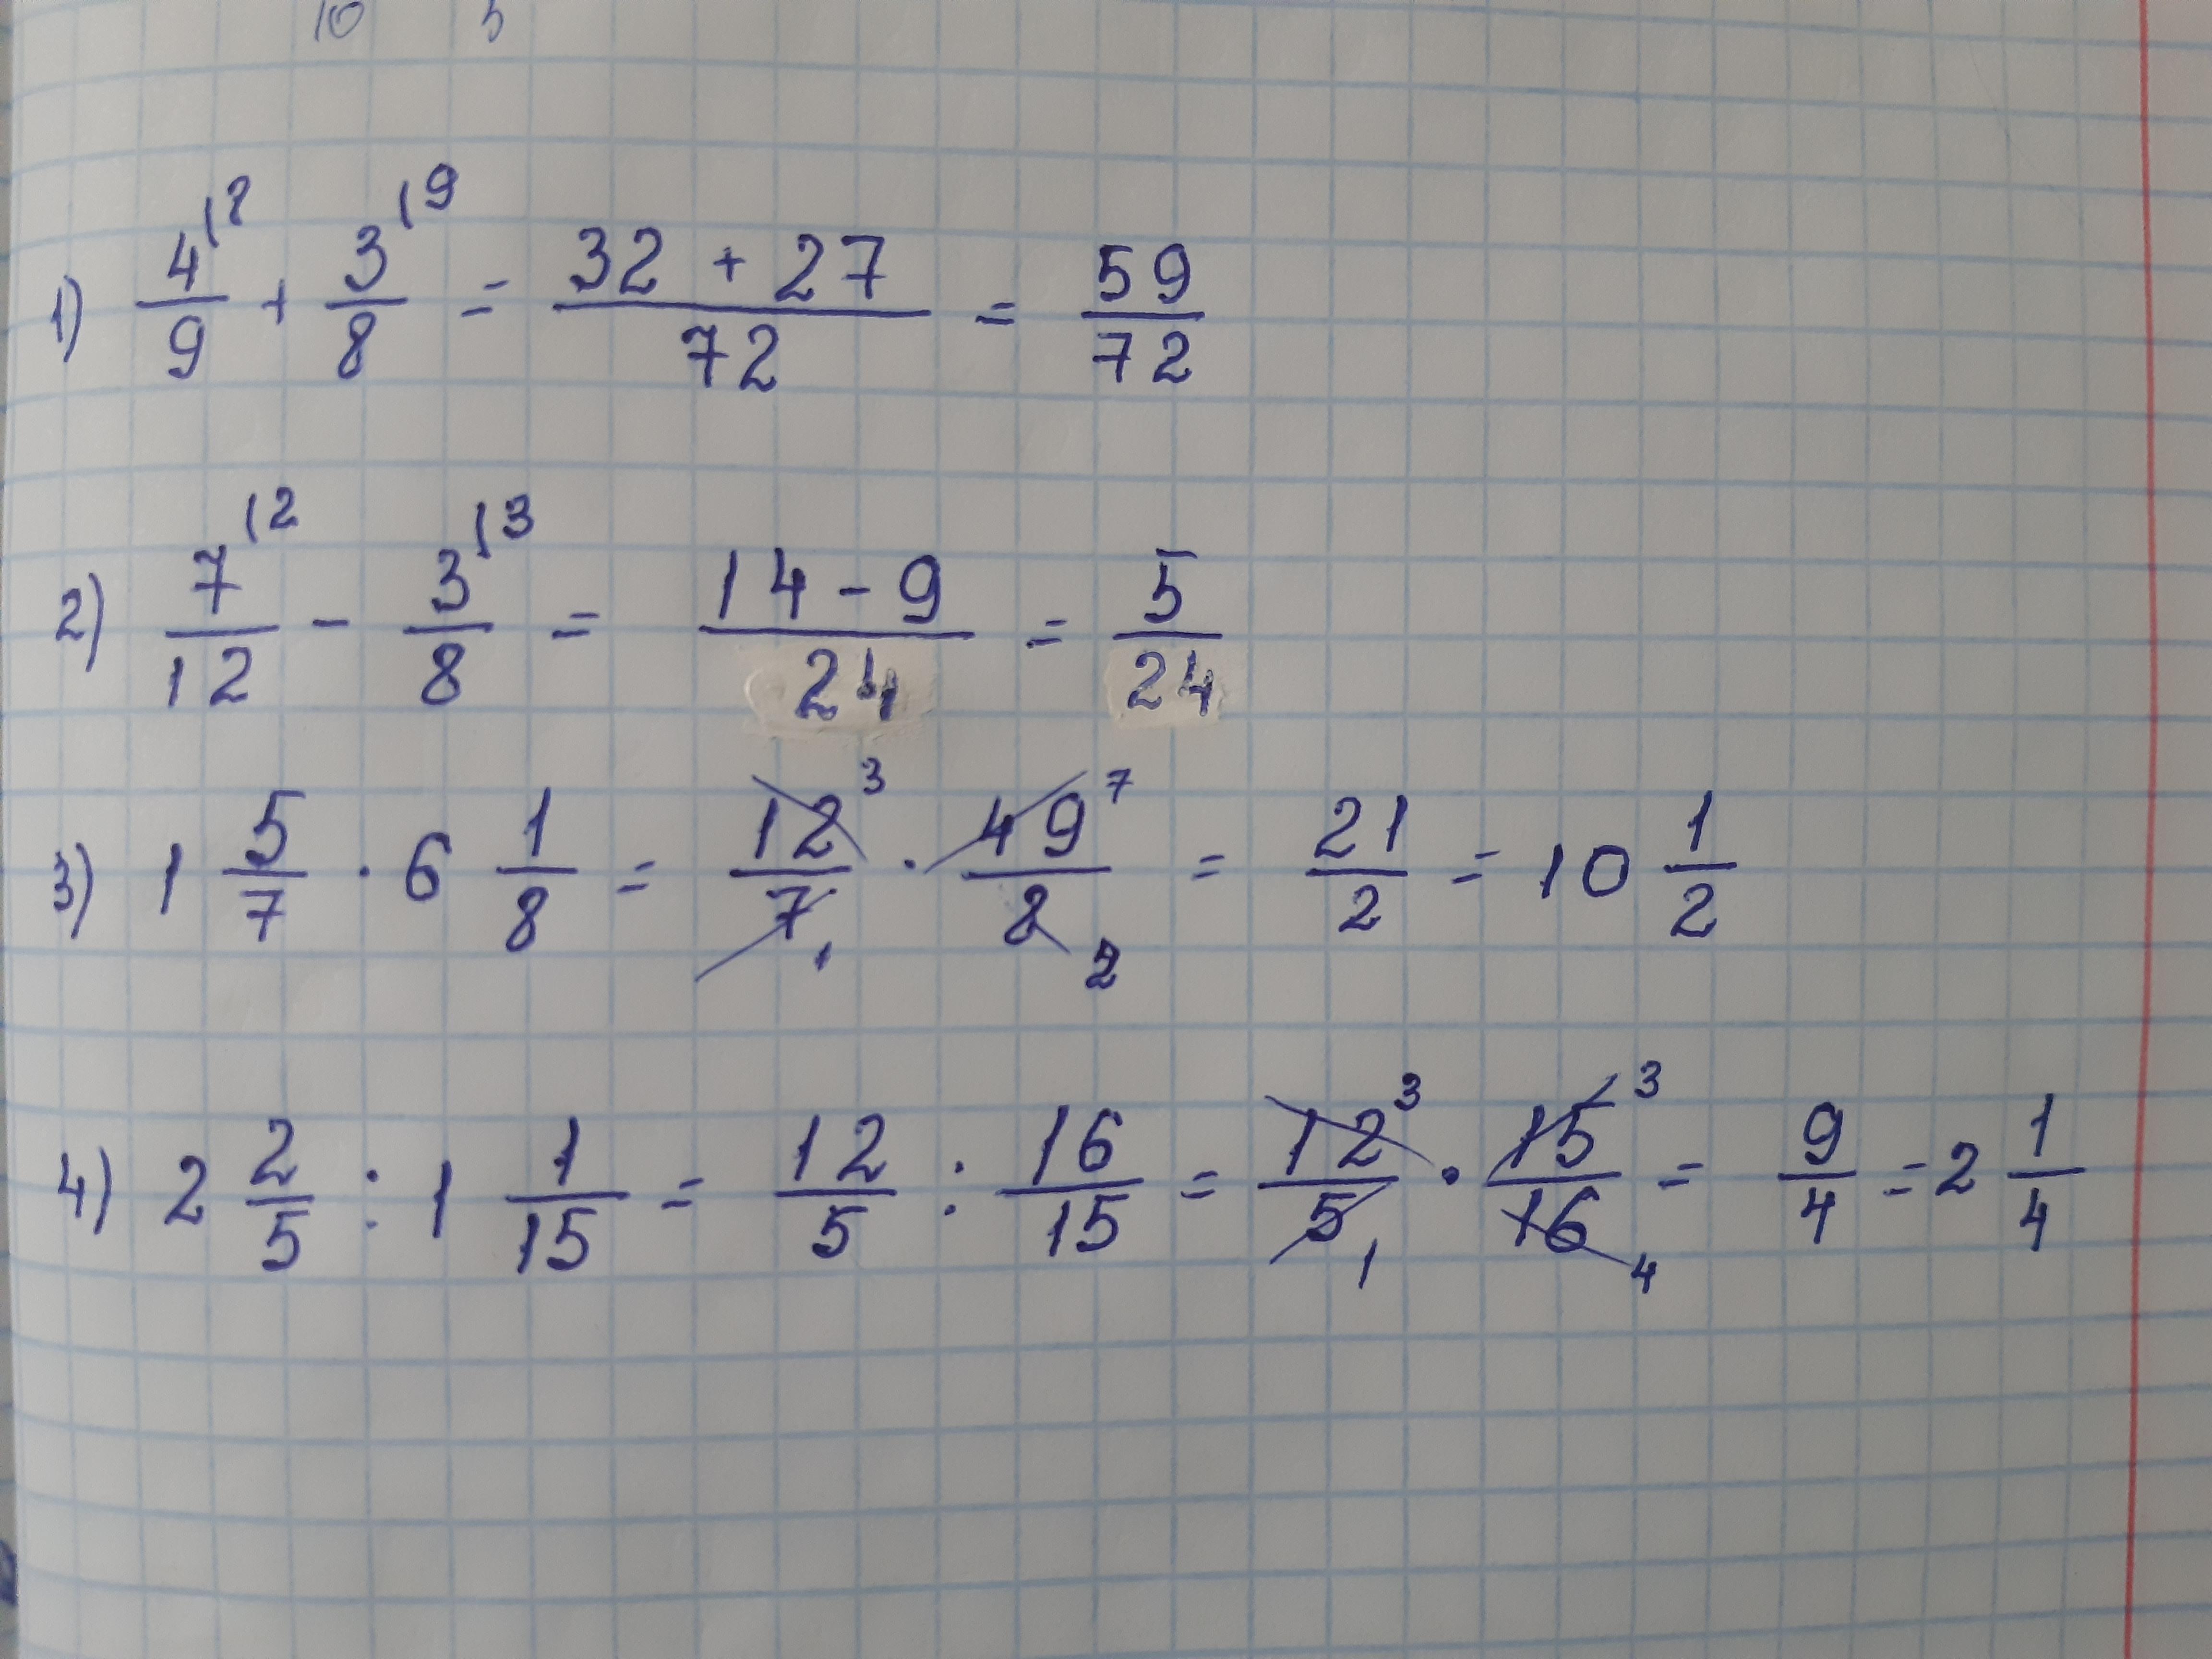 10 5
1) 4/9 |8 + 3/8 |9 = (32 + 27)/72 = 59/72
2) 7/12 |2 - 3/8 |3 = (14 - 9)/24 = 5/24
3) 1 5/7 · 6 1/8 = 12 3/7 1 · 49 7/8 2 = 21/2 = 10 1/2
4) 2 2/5 : 1 1/15 = 12/5 : 16/15 = 12 3/5 1 · 15 3/16 4 = 9/4 = 2 1/4